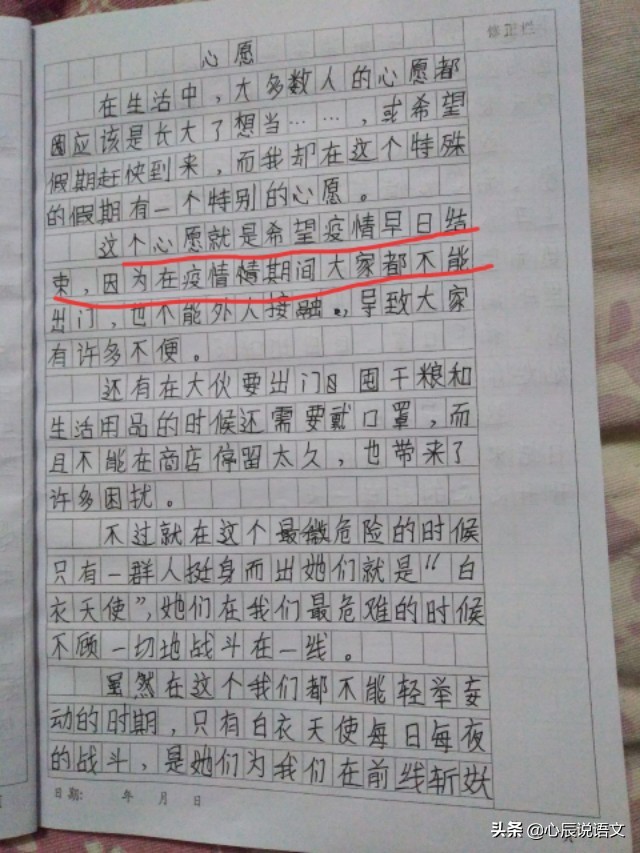 修正栏
心愿
在生活中，大多数人的心愿都
因应该是长大了想当……，或希望
假期赶快到来，而我却在这个特殊
的假期有一个特别的心愿。
这个心愿就是希望疫情早日结
束，因为在疫情情期间大家都不能
出门，也不能外人接融。，导致大家
有许多不便。
还有在大伙要出门 囤干粮和
生活用品的时候还需要戴口罩，而
且不能在商店停留太久，也带来了
许多困扰。
不过就在这个最微危险的时候
只有一群人挺身而出她们就是“白
衣天使”，她们在我们最危难的时候
不顾一切地战斗在一线。
虽然在这个我们都不能轻举妄
动的时期，只有白衣天使每日每夜
的战斗，是她们为我们在前线斩妖
日期： 年 月 日
头条 @心辰说语文